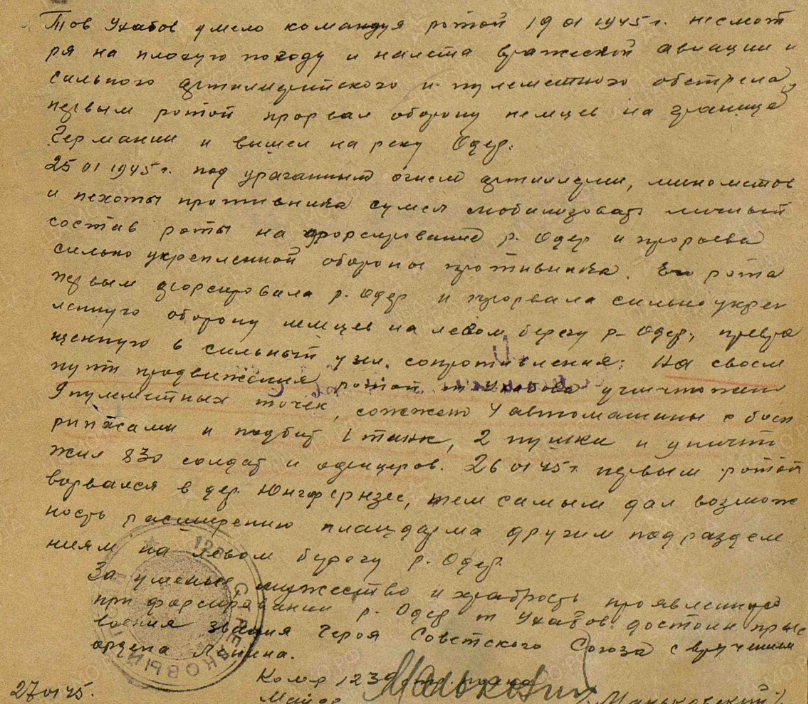 Тов Ухабов умело командуя ротой 19 01 1945 г. несмот
ря на плохую погоду и налета вражеской авиации и
сильного артиллерийского и пулеметного обстрела
первым ротой прорвал оборону немцев на границе
Германии и вышел на реку Одер.
25 01 1945 г. под ураганным огнем артиллерии, минометов
и пехоты противника сумел мобилизовать личный
состав роты на форсирование р. Одер и прорыва
сильно укрепленной обороны противника. Его рота
первым форсировала р. Одер и прорвала сильно укреп
ленную оборону немцев на левом берегу р. Одер, превра
щенную в сильный узел сопротивления. На своем
пути продвижения ротой т Ухабова уничтожено
9 пулеметных точек, сожжено 4 автомашины с боеп
рипасами и подбит 1 танк, 2 пушки и уничто
жил 830 солдат и офицеров. 26 01 45 г. первым ротой
ворвался в дер. Юнгфернзее, тем самым дал возмож
ность расширению плацдарма другим подразделе
ниям на левом берегу р. Одер.
За уменье мужество и храбрость проявленную
при форсировании р. Одер т Ухабов достоин прис
воения звания Героя Советского Союза с вручением
ордена Ленина.
27 01 45. Ком-р 1239 стр. полка
Майор Маньковский